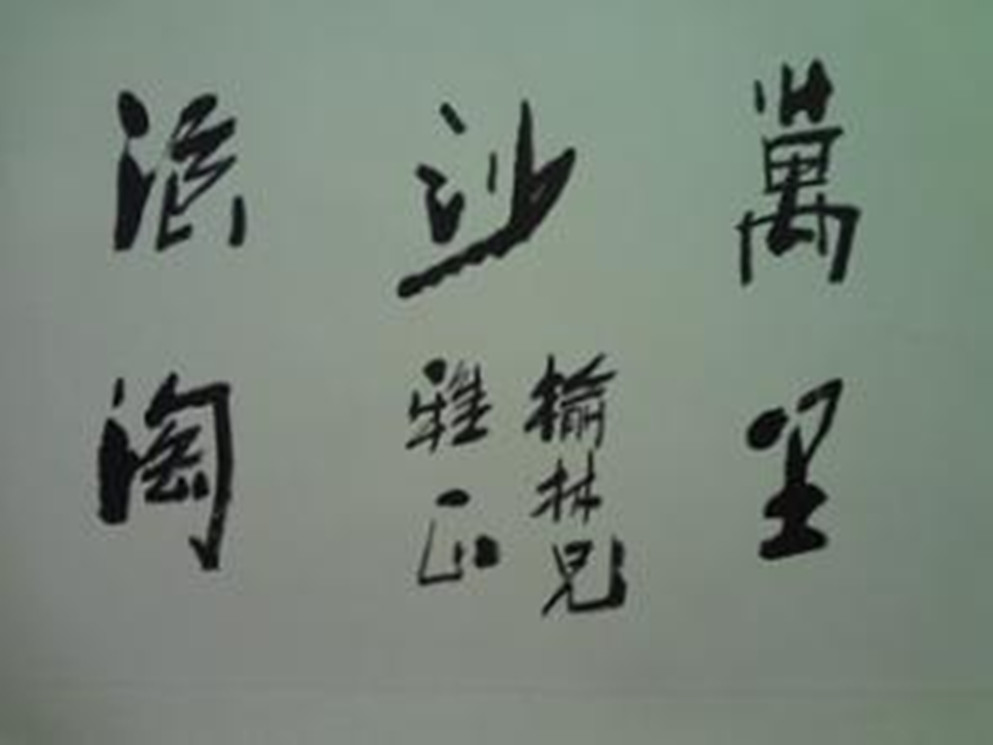 萬里
沙
榆林兄
雅正
浪淘